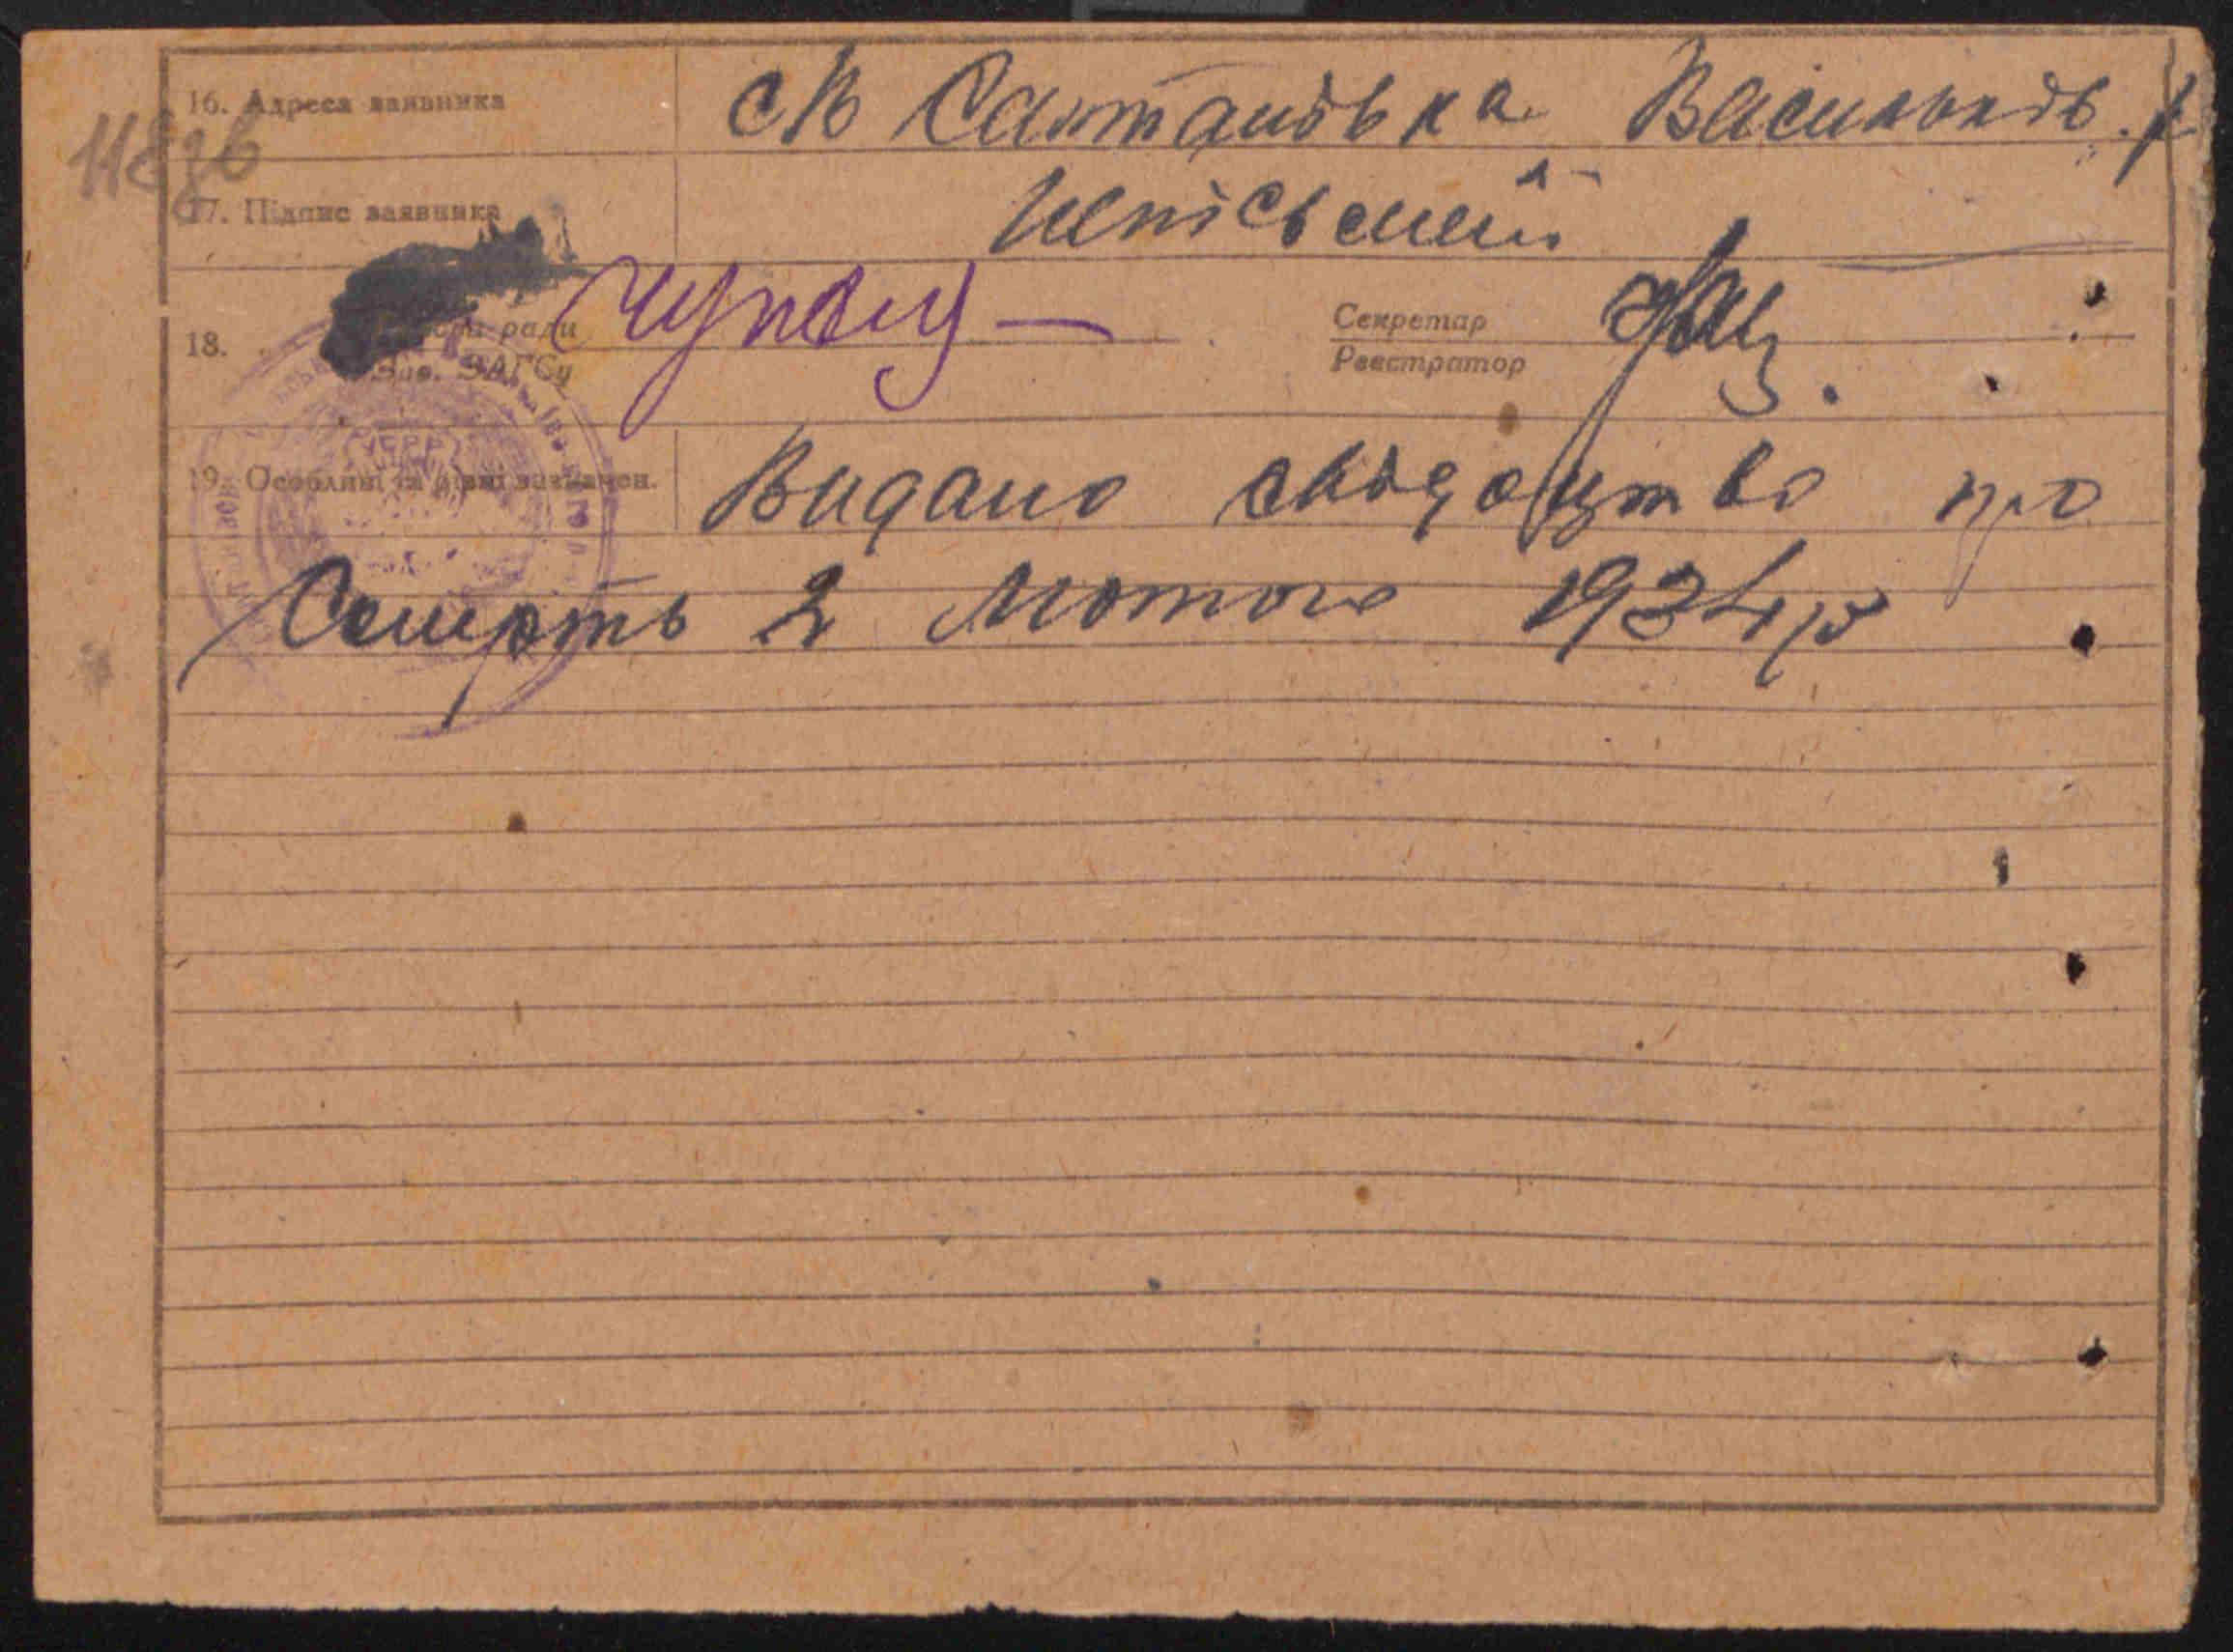 16. Адреса заявника с Салтановка Васильков. р
17. Підпис заявника неписьмен
18. ради
Зав. ЗАГСу
Секретар
Реєстратор
19. Особливі та різні зазначен. Видано свідоцтво про
Смерть 2 Лютого 1934 р
УСРР